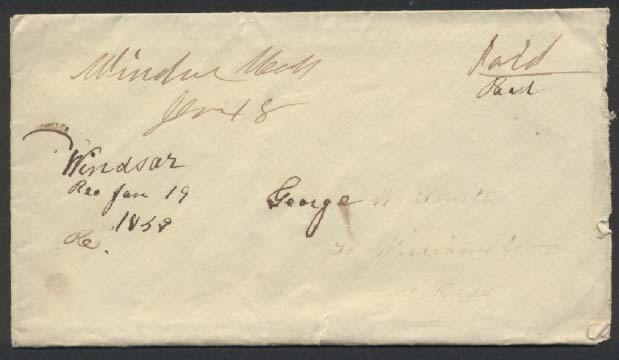 Windsor Mass
Jan 18
Paid
Paid
Windsor
Rec Jan 19
1858
Re.
George W Smith
So Williamstown
Mass